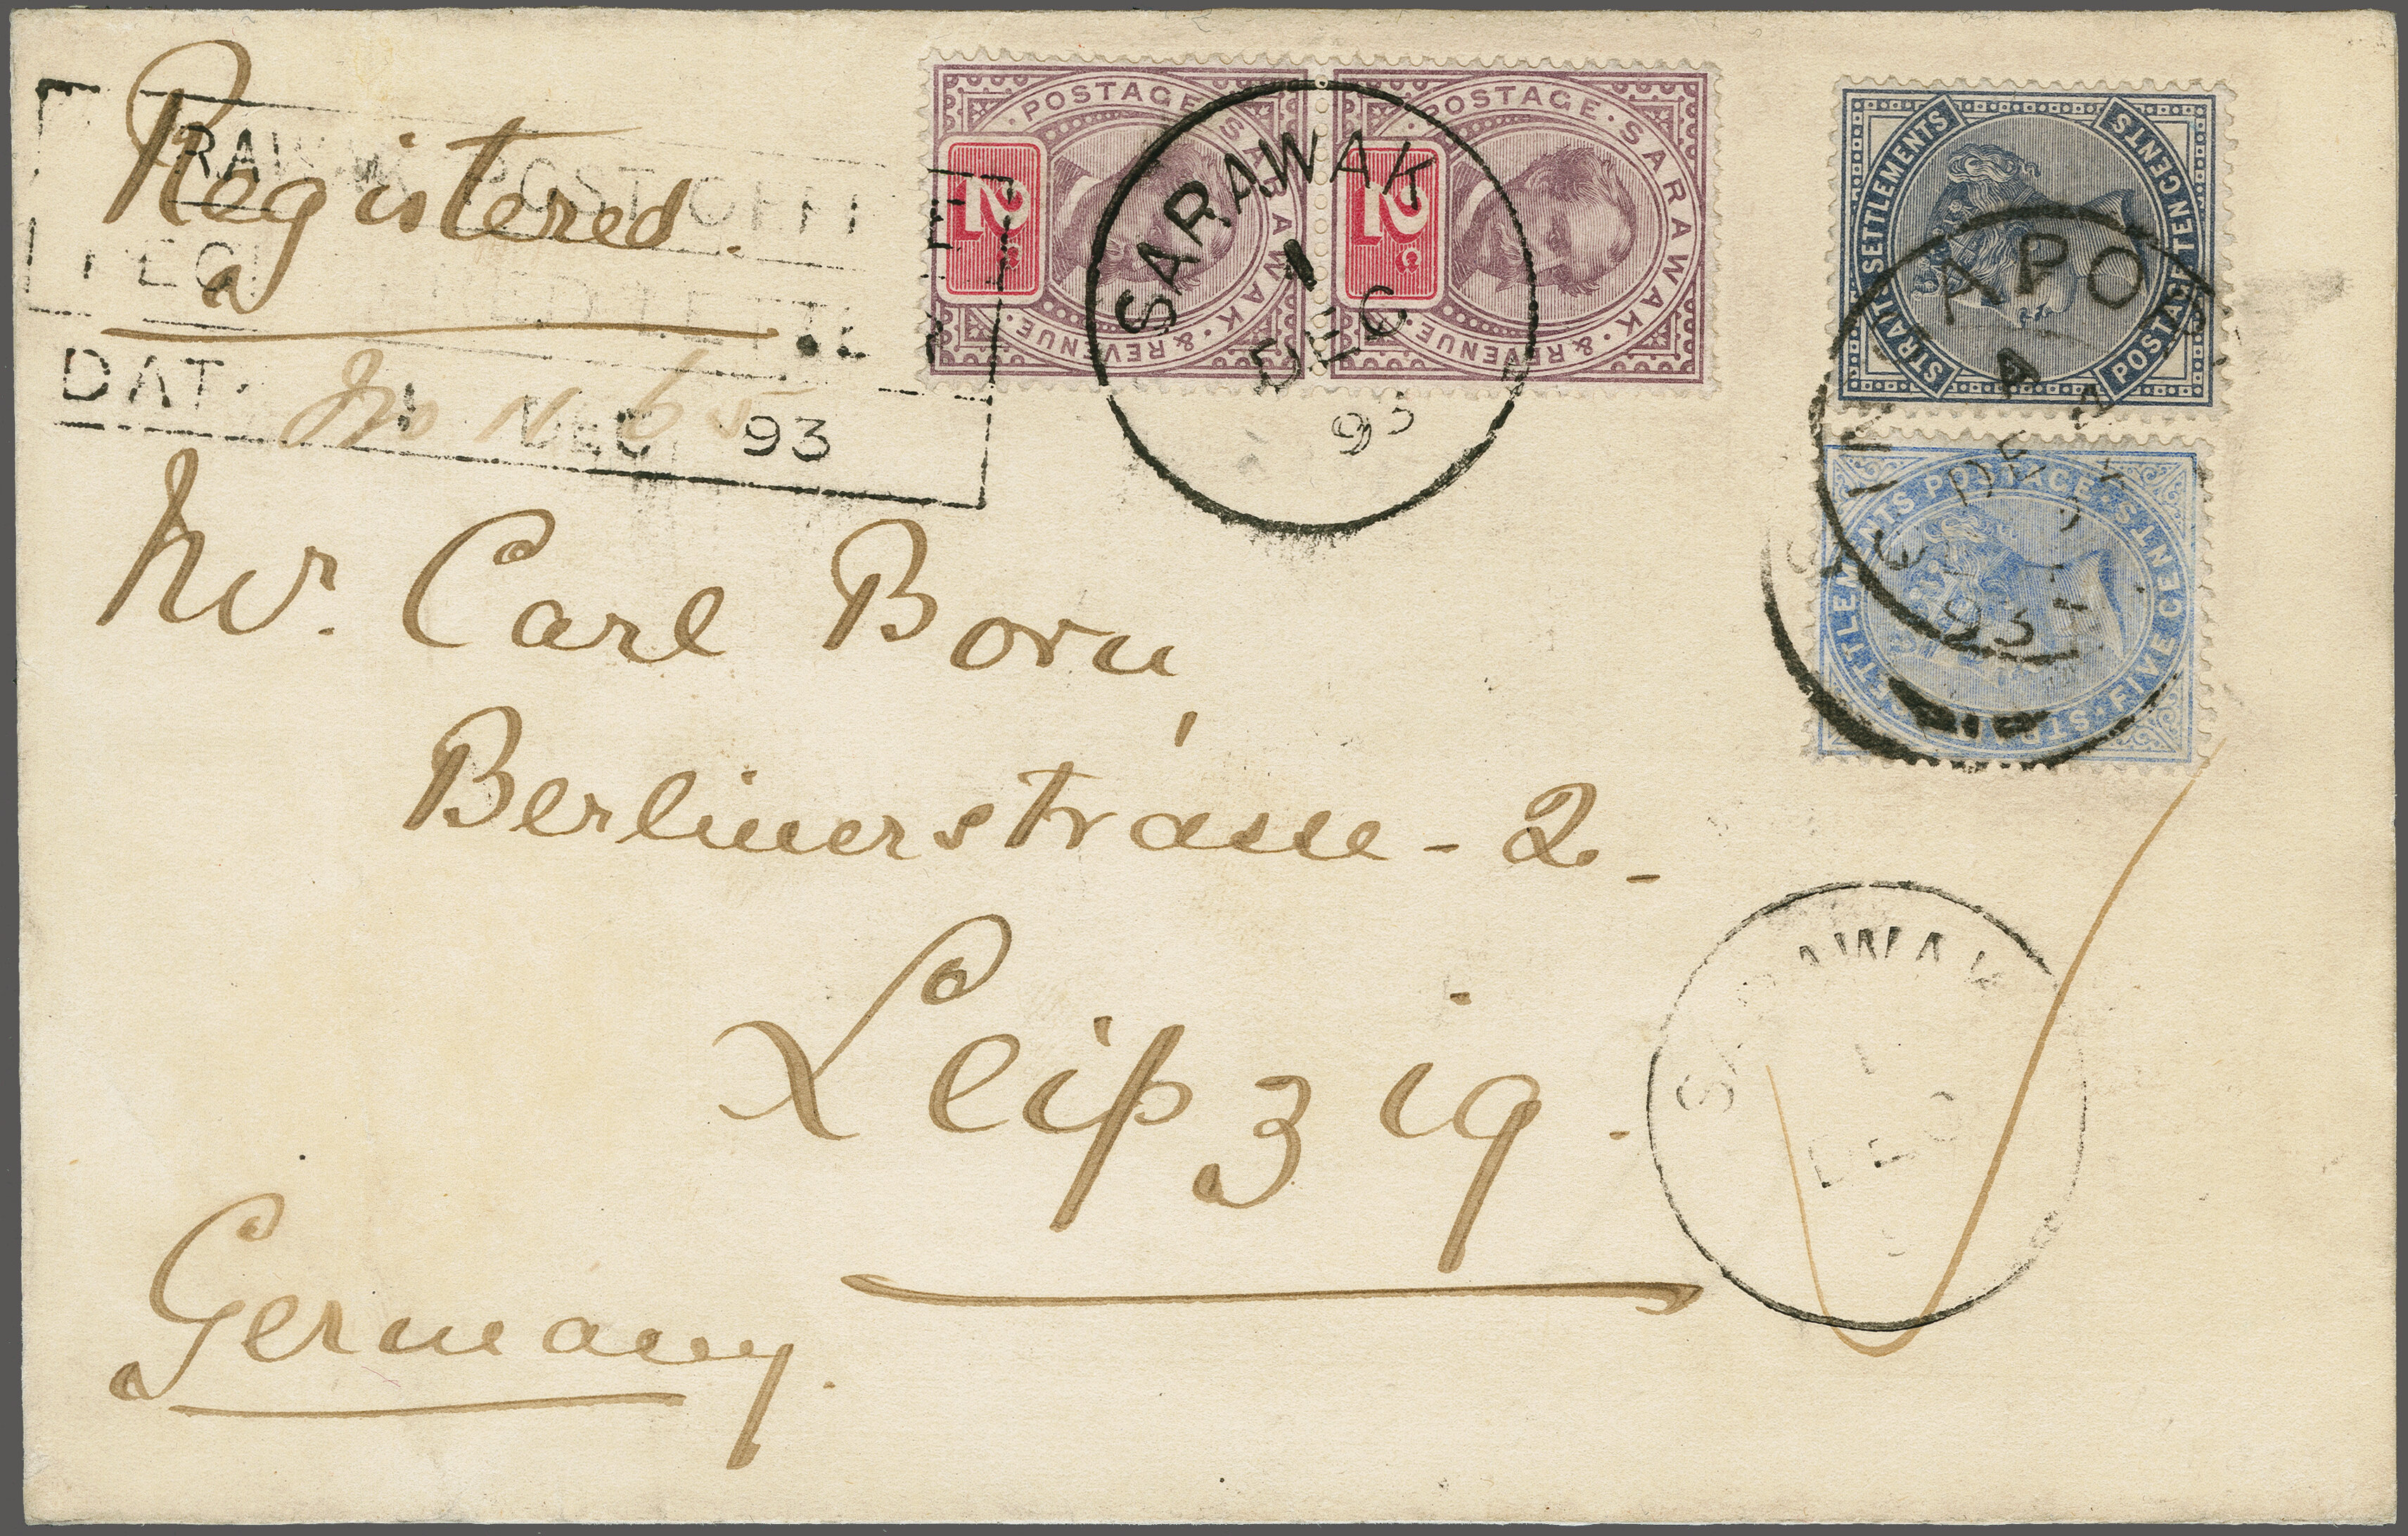 Registered.
RAWAK POST OFFI
DAT
1 DEC 93
POSTAGE · SARAWAK · & REVENUE ·
2c
POSTAGE · SARAWAK · & REVENUE ·
2c
SARAWAK
1
DEC
93
STRAITS SETTLEMENTS
POSTAGE TEN CENTS
SETTLEMENTS POSTAGE · FIVE CENTS
APO
A
DE
93
Mr. Carl Born,
Berlinerstrasse - 2 -
Leipzig.
Germany.
SARAWAK
1
DEC